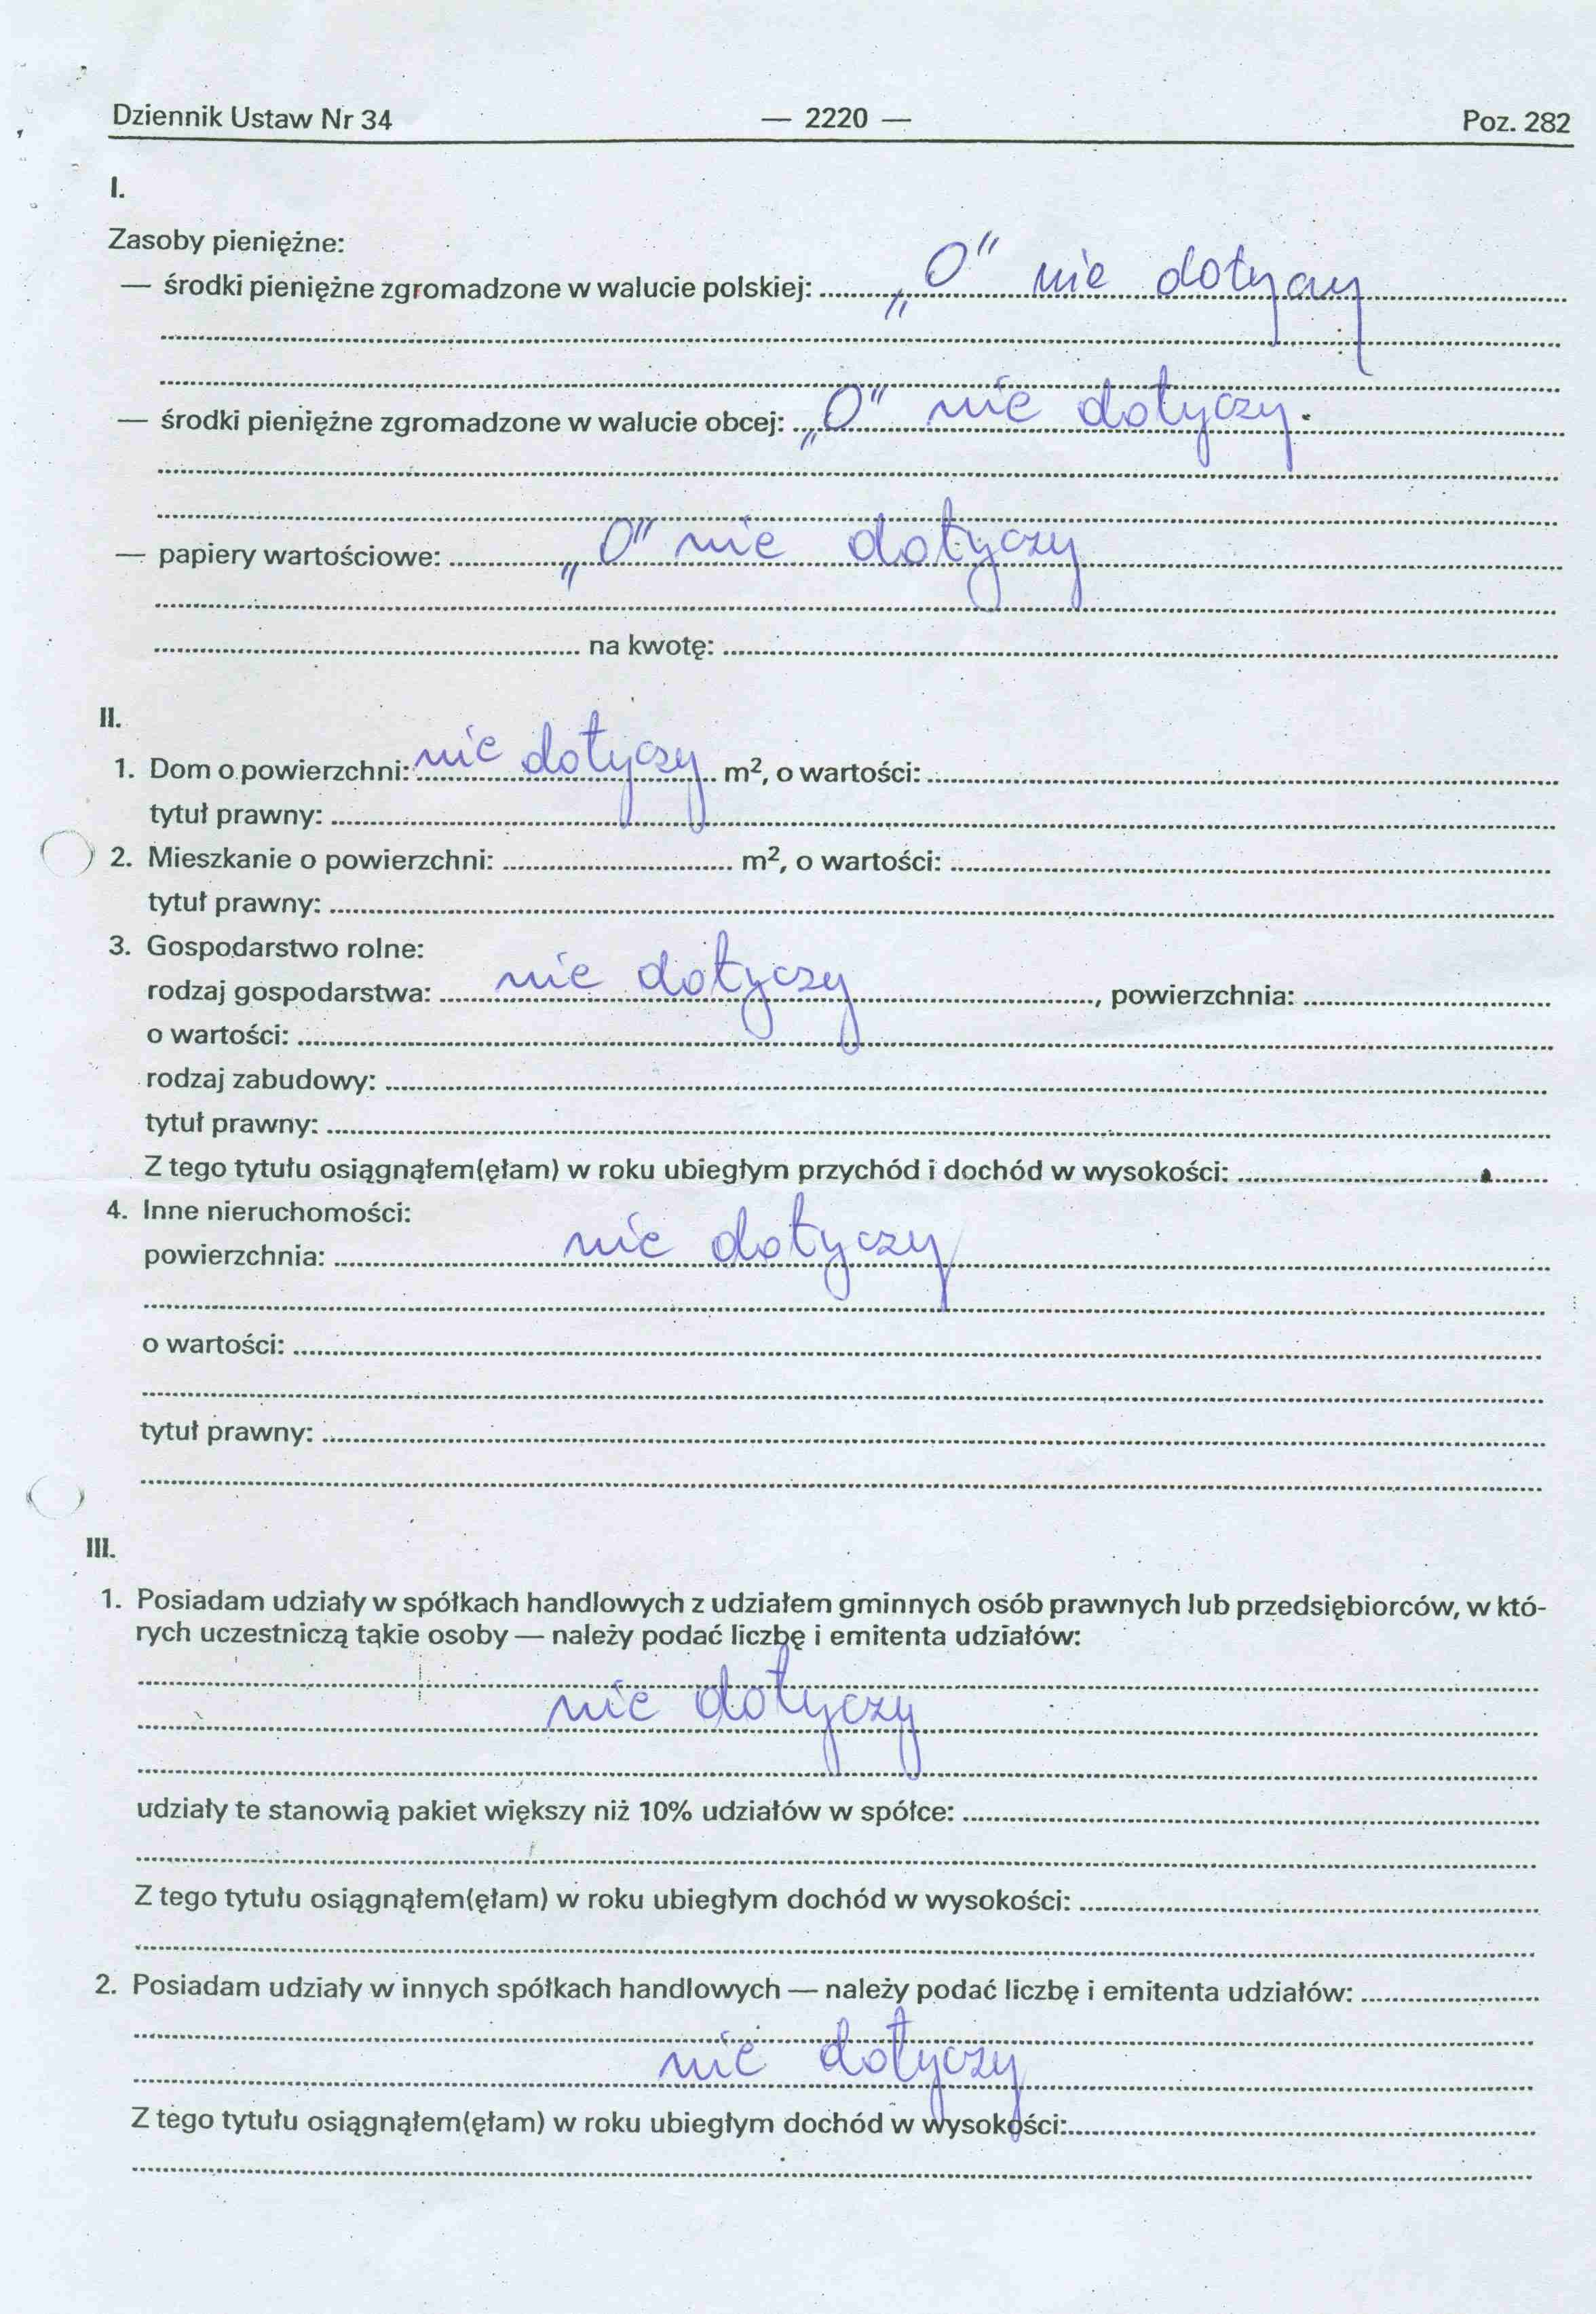 Dziennik Ustaw Nr 34 — 2220 — Poz. 282
I.
Zasoby pieniężne:
— środki pieniężne zgromadzone w walucie polskiej: „0" nie dotyczy
— środki pieniężne zgromadzone w walucie obcej: „0" nie dotyczy.
— papiery wartościowe: „0" nie dotyczy
na kwotę:
II.
1. Dom o powierzchni: nie dotyczy m², o wartości:
tytuł prawny:
2. Mieszkanie o powierzchni: m², o wartości:
tytuł prawny:
3. Gospodarstwo rolne:
rodzaj gospodarstwa: nie dotyczy, powierzchnia:
o wartości:
rodzaj zabudowy:
tytuł prawny:
Z tego tytułu osiągnąłem(ęłam) w roku ubiegłym przychód i dochód w wysokości:
4. Inne nieruchomości:
powierzchnia: nie dotyczy
o wartości:
tytuł prawny:
III.
1. Posiadam udziały w spółkach handlowych z udziałem gminnych osób prawnych lub przedsiębiorców, w któ-
rych uczestniczą takie osoby — należy podać liczbę i emitenta udziałów:
nie dotyczy
udziały te stanowią pakiet większy niż 10% udziałów w spółce:
Z tego tytułu osiągnąłem(ęłam) w roku ubiegłym dochód w wysokości:
2. Posiadam udziały w innych spółkach handlowych — należy podać liczbę i emitenta udziałów:
nie dotyczy
Z tego tytułu osiągnąłem(ęłam) w roku ubiegłym dochód w wysokości: